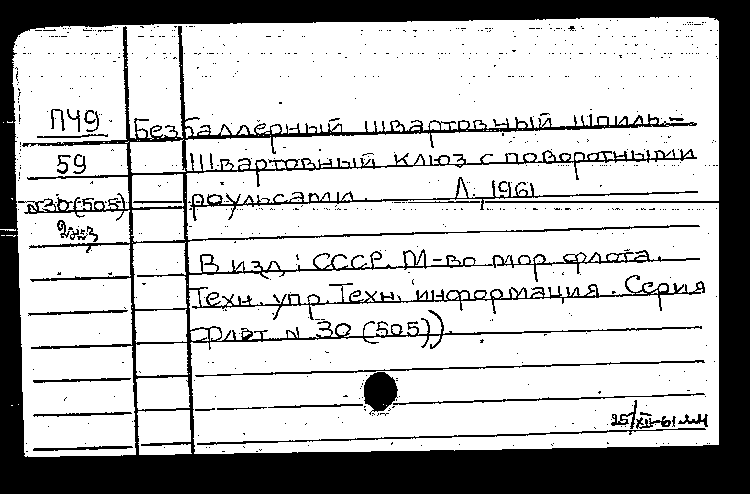 П49 Безбаллерный швартовный шпиль.-
59 Швартовный клюз с поворотными
N30(505) роульсами. Л., 1961
2экз
В изд: СССР. М-во мор. флота.
Техн. упр. Техн. информация. Серия
Флот N 30 (505)).
25/XII-61